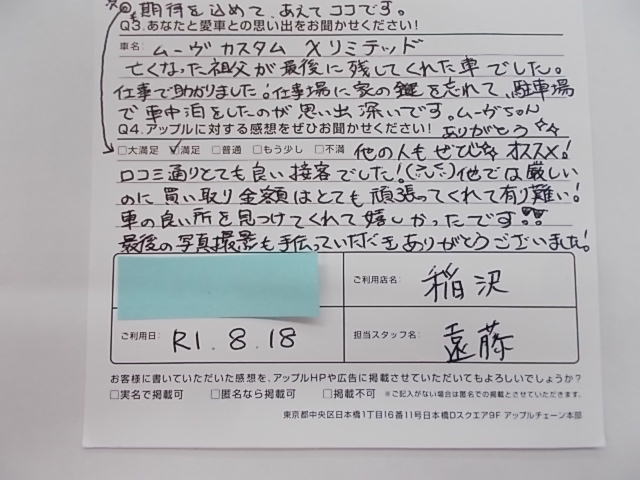 期待を込めて、あえてココです。
Q3.あなたと愛車との思い出をお聞かせください!
車名: ムーヴカスタム Xリミテッド
亡くなった祖父が最後に残してくれた車でした。
仕事で助かりました!仕事場に家の鍵を忘れて、駐車場
で車中泊をしたのが思い出深いです。ムーヴちゃん
Q4.アップルに対する感想をぜひお聞かせください! ありがとう☆☆
□大満足 ☑満足 □普通 □もう少し □不満 他の人もぜひ☆オススメ!
口コミ通りとても良い接客でした! 他では厳しい
のに買い取り金額はとても頑張ってくれて有り難い!
車の良い所を見つけてくれて嬉しかったです!!
最後の写真撮影も手伝っていただきありがとうございました!
ご利用店名: 稲沢
ご利用日: R1.8.18
担当スタッフ名: 遠藤
お客様に書いていただいた感想を、アップルHPや広告に掲載させていただいてもよろしいでしょうか?
□実名で掲載可 □匿名なら掲載可 □掲載不可 ※ご記入がない場合は匿名での掲載とさせていただきます。
東京都中央区日本橋1丁目16番11号日本橋Dスクエア9F アップルチェーン本部